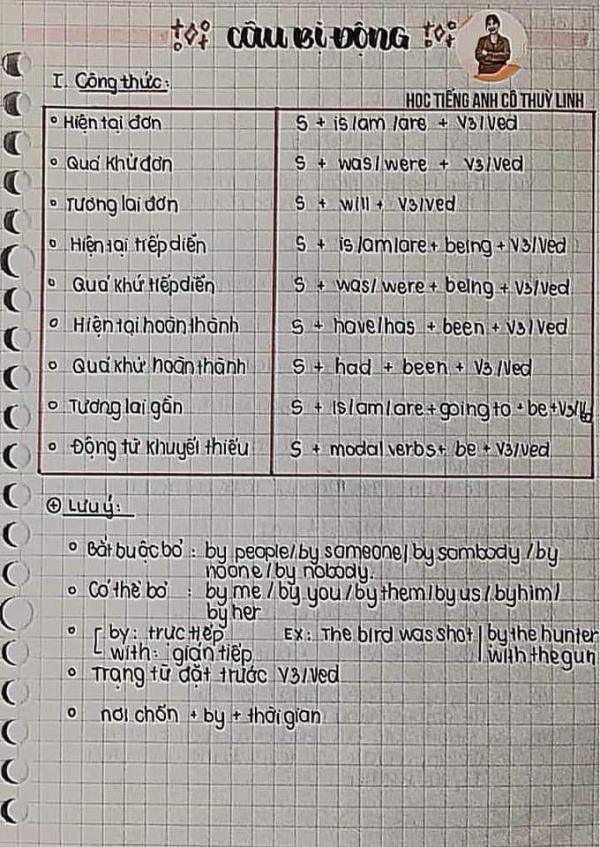 CÂU BỊ ĐỘNG
I. Công thức:
HỌC TIẾNG ANH CÔ THUỲ LINH
Hiện tại đơn S + is/am/are + V3/Ved
Quá khứ đơn S + was/were + V3/Ved
Tương lai đơn S + will + V3/Ved
Hiện tại tiếp diễn S + is/am/are + being + V3/Ved
Quá khứ tiếp diễn S + was/were + being + V3/Ved
Hiện tại hoàn thành S + have/has + been + V3/Ved
Quá khứ hoàn thành S + had + been + V3/Ved
Tương lai gần S + is/am/are + going to + be + V3/Ved
Động từ khuyết thiếu S + modal verbs + be + V3/Ved
⊕ Lưu ý:
Bắt buộc bỏ : by people/by someone/by sombody/by
noone/by nobody.
Có thể bỏ : by me/by you/by them/by us/by him/
by her
by: trực tiếp EX: The bird was shot by the hunter
with: gián tiếp with the gun
Trạng từ đặt trước V3/Ved
nơi chốn + by + thời gian